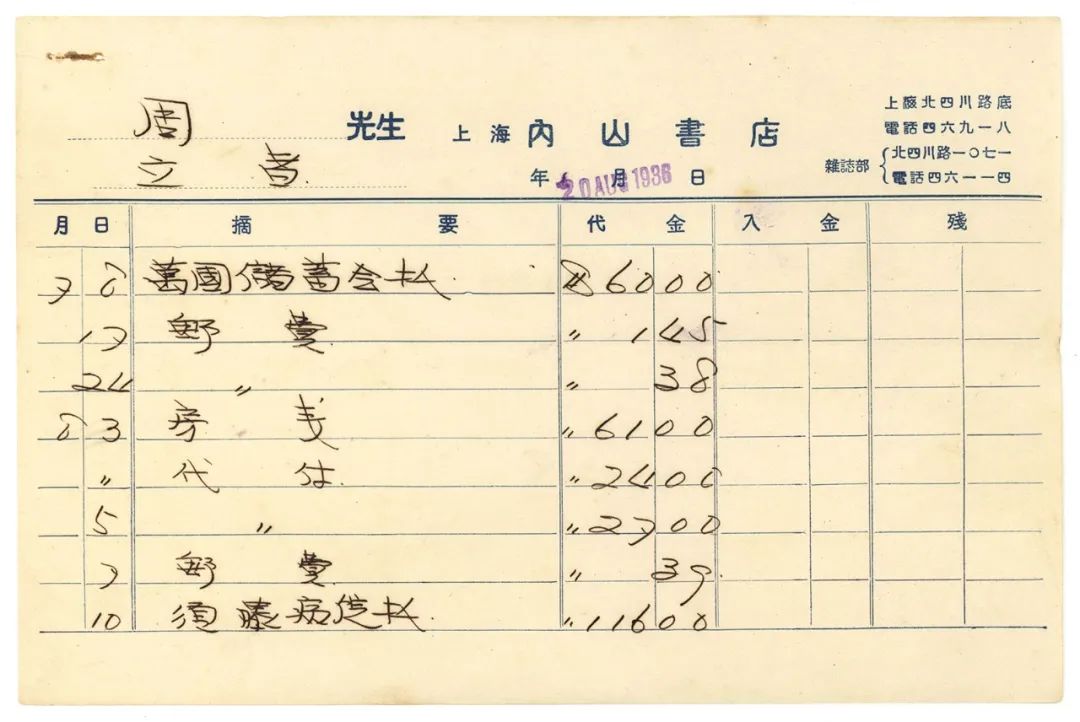 周 先生 上海 內山書店
立
年 月 日
20 AUG 1936
上海北四川路底
電話四六九一八
雜誌部
北四川路一〇七一
電話四六一一四
月 日 摘要 代金 入金 殘
7 6 萬國儲蓄会払 6000
17 郵費 〃 145
24 〃 〃 38
8 3 房 〃 6100
〃 代付 〃 2400
5 〃 〃 2700
7 郵費 〃 39
10 須藤病院払 〃 11600